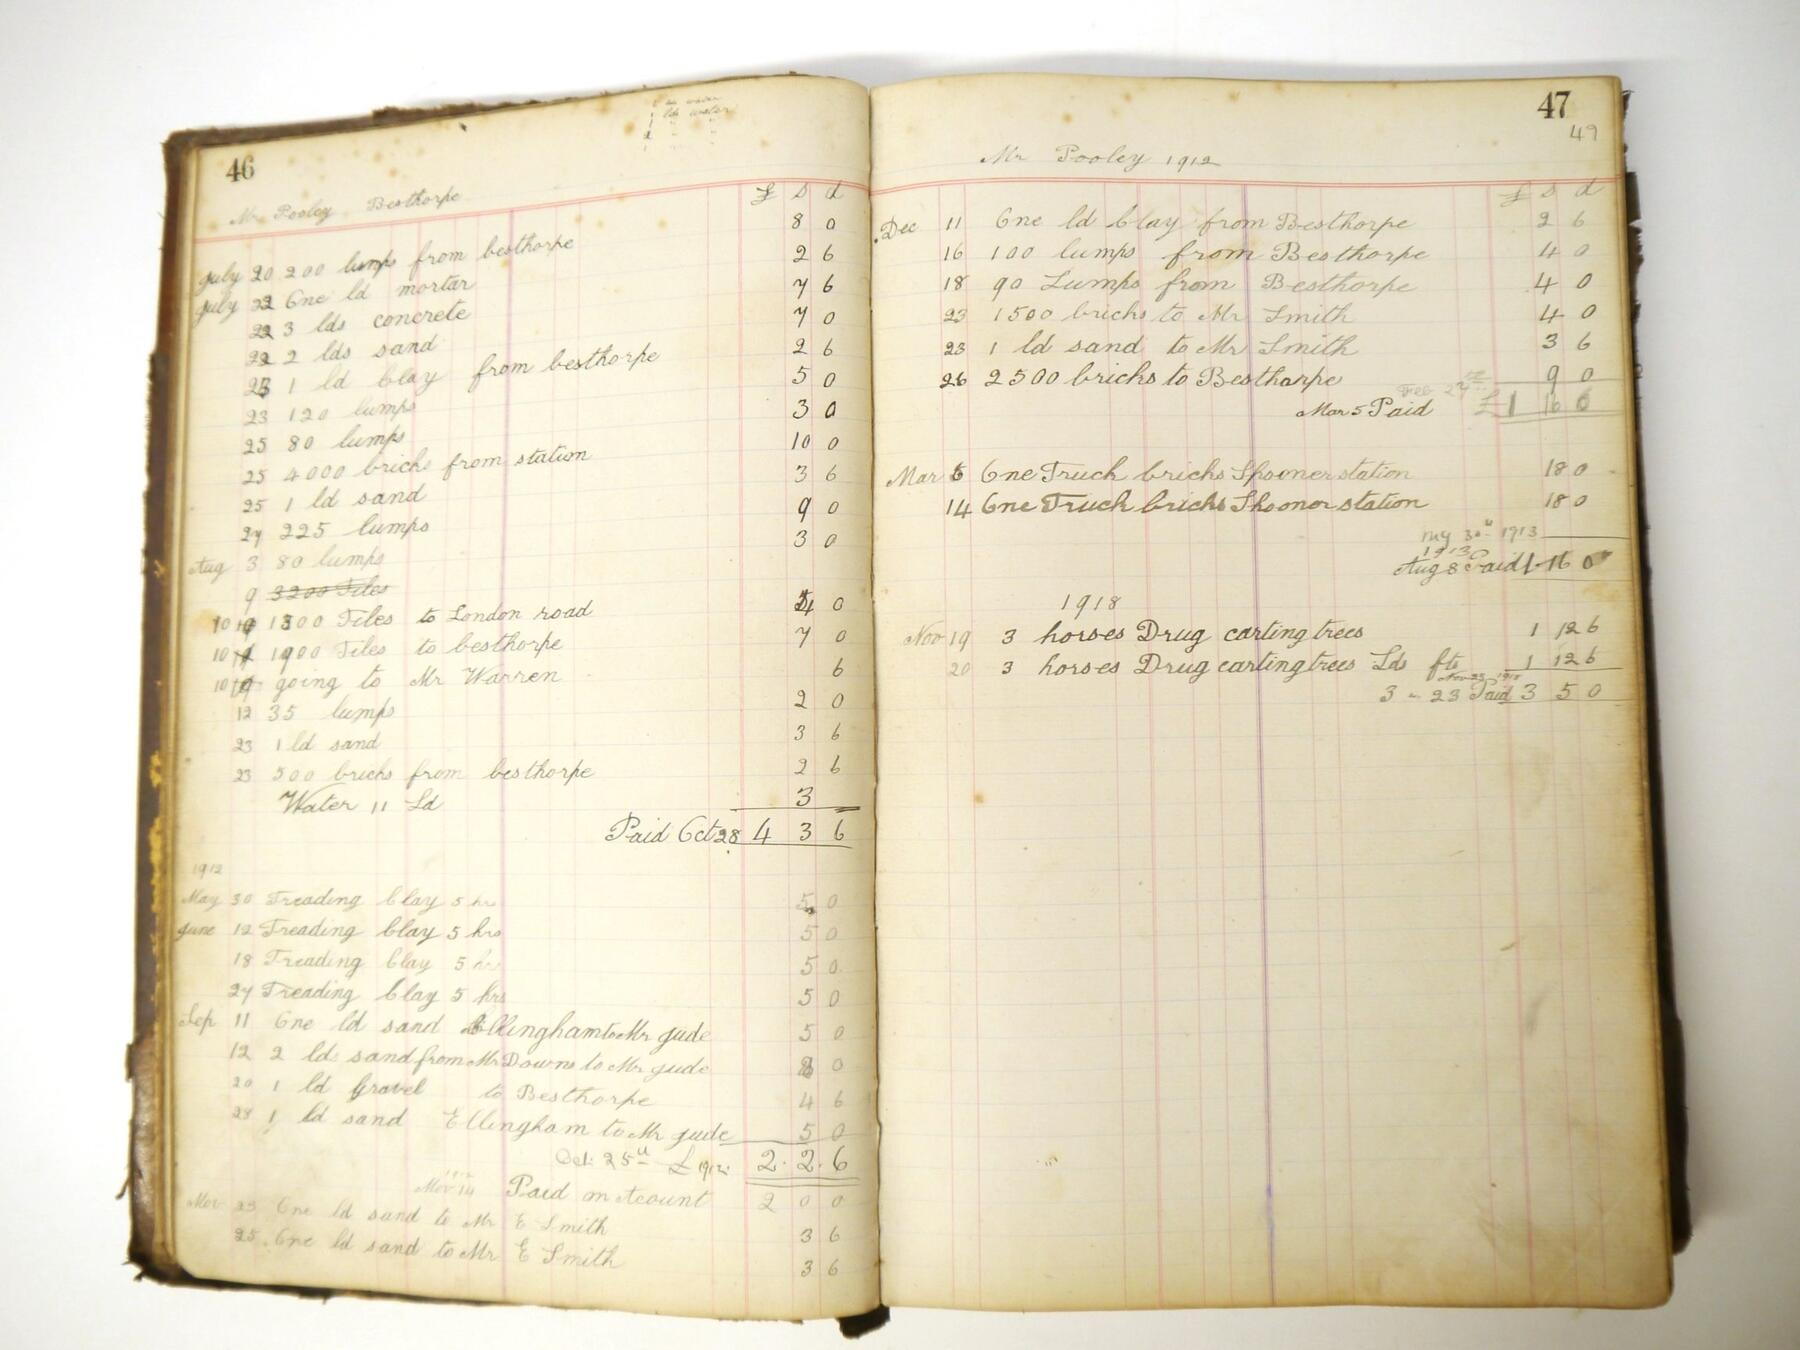 46
lds water
Mr Pooley Besthorpe
£ s d
July 20 200 lumps from besthorpe 8 0
July 22 One ld mortar 2 6
22 3 lds concrete 7 6
22 2 lds sand 7 0
23 1 ld Clay from besthorpe 2 6
23 120 lumps 5 0
25 80 lumps 3 0
25 4000 bricks from station 10 0
25 1 ld sand 3 6
27 225 lumps 9 0
Aug 3 80 lumps 3 0
9 3200 Tiles
10 1300 Tiles to London road 4 0
10 1900 Tiles to besthorpe 7 0
10 going to Mr Warren 6
12 35 lumps 2 0
23 1 ld sand 3 6
23 500 bricks from besthorpe 2 6
Water 11 Ld 3
Paid Oct 28 4 3 6
1912
May 30 Treading Clay 5 hrs 5 0
June 12 Treading Clay 5 hrs 5 0
18 Treading Clay 5 hrs 5 0
27 Treading Clay 5 hrs 5 0
Sep 11 One ld sand Ellingham to Mr Jude 5 0
12 2 lds sand from Mr Downs to Mr Jude 8 0
20 1 ld Gravel to Besthorpe 4 6
28 1 ld sand Ellingham to Mr Jude 5 0
Oct 25th £ 1912. 2. 2. 6
1912
Nov 14 Paid on Acount 2 0 0
Nov 23 One ld sand to Mr E Smith 3 6
25 One ld sand to Mr E Smith 3 6
47
49
Mr Pooley 1912
£ s d
Dec 11 One ld Clay from Besthorpe 2 6
16 100 lumps from Besthorpe 4 0
18 90 Lumps from Besthorpe 4 0
23 1500 bricks to Mr Smith 4 0
23 1 ld sand to Mr Smith 3 6
26 2500 bricks to Besthorpe 9 0
Feb 27th
Mar 5 Paid £1 6
Mar 5 One Truck bricks Spooner station 18 0
14 One Truck bricks Shoonor station 18 0
My 30th 1913
1913
Aug 8 Paid 1 16 0
1918
Nov 19 3 horses Drug carting trees 1 12 6
20 3 horses Drug carting trees Lds fts 1 12 6
Nov 23 1918
23 Paid 3 5 0